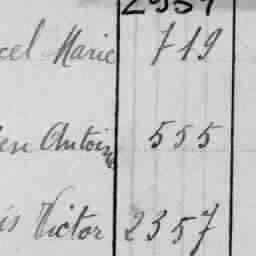 2957
cel Marie 719
en Antoine 555
is Victor 2357